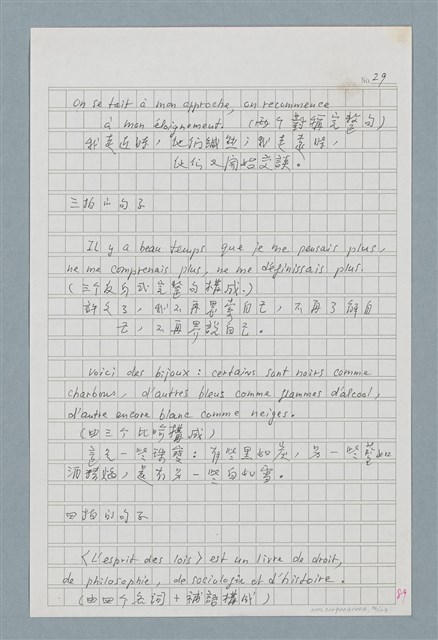 No. 29
On se tait à mon approche, on recommence
à mon éloignement. (两个對稱完整句)
我走近時，他們緘默；我走遠時，
他们又開始交談。
三拍的句子
Il y a beau temps que je me pensais plus,
ne me comprenais plus, ne me définissais plus.
(三个反身式完整句構成.)
許久了，我不再思索自己，不再了解自
己，不再界說自己。
Voici des bijoux : certains sont noirs comme
charbons, d'autres bleus comme flammes d'alcool,
d'autre encore blanc comme neiges.
(由三个比喻構成)
這是一些珠寶：有些黑如炭，另一些藍如
酒精焰，還有另一些白如雪。
四拍的句子
<L'esprit des lois> est un livre de droit,
de philosophie, de sociologie et d'histoire.
(由四个名词+補語構成)
84